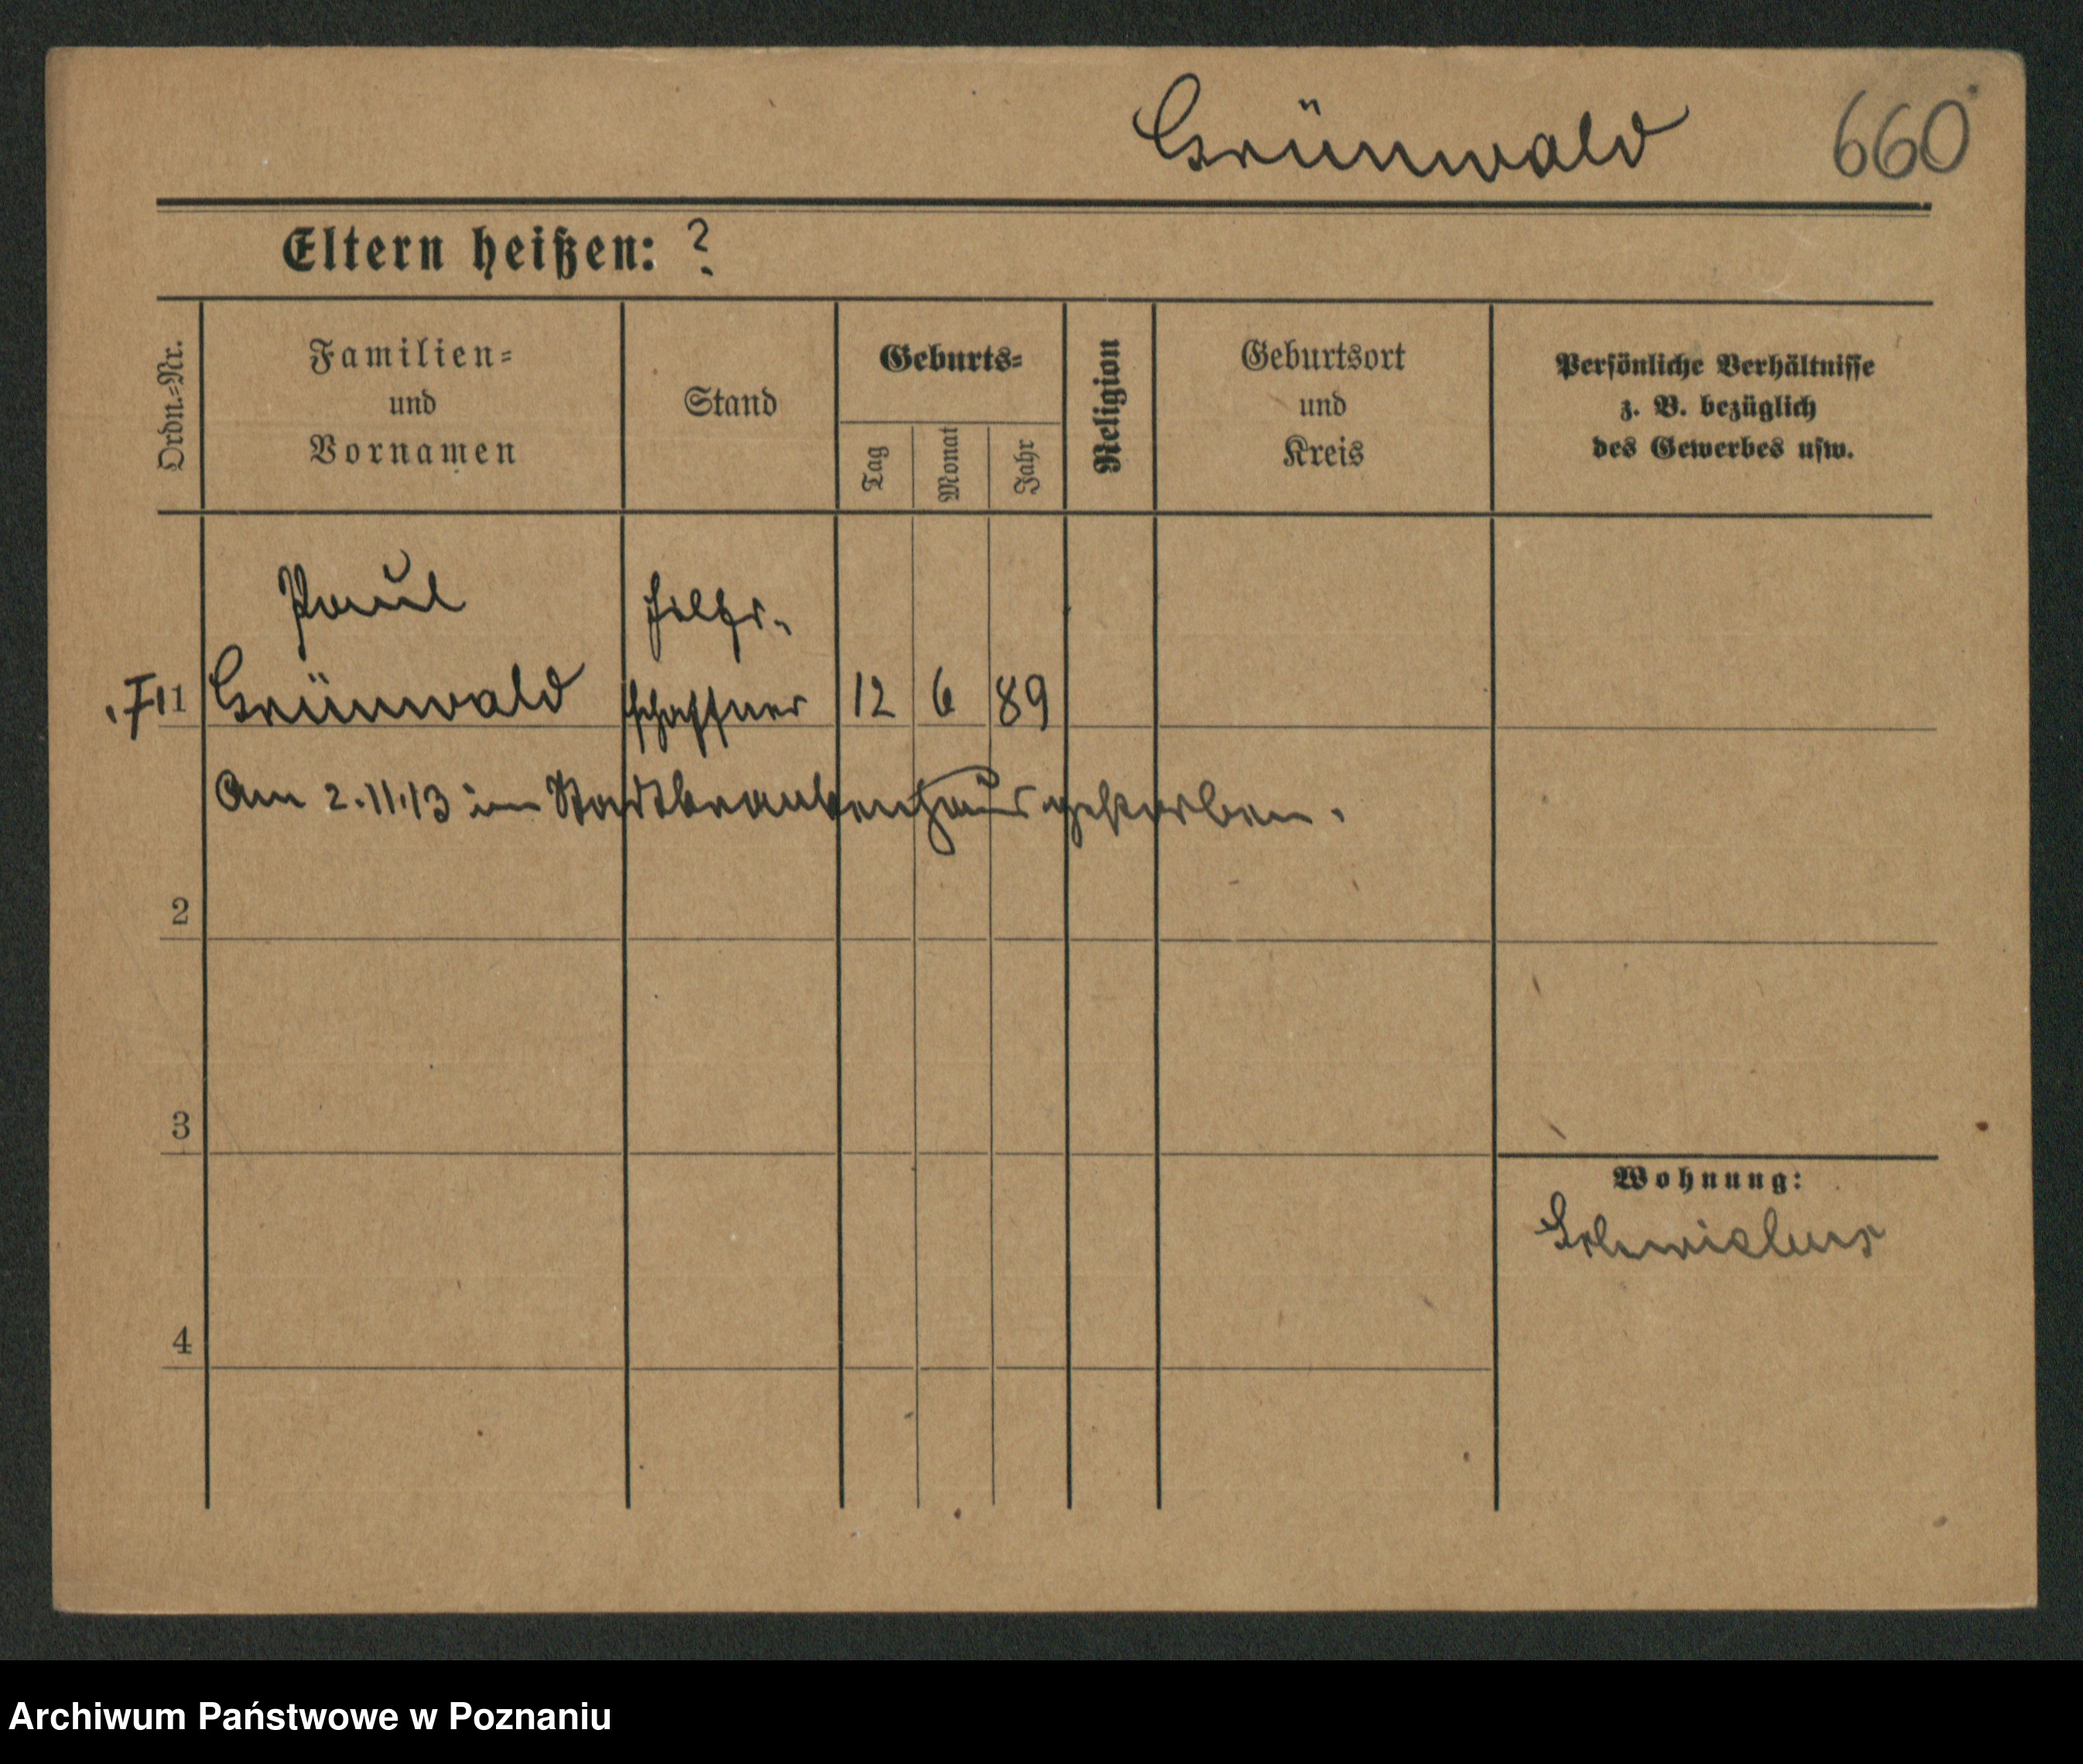 Grünwald 660
Eltern heißen: ?
Ordn.-Nr.
Familien-
und
Vornamen
Stand
Geburts-
Tag
Monat
Jahr
Religion
Geburtsort
und
Kreis
Persönliche Verhältnisse
z. B. bezüglich
des Gewerbes usw.
Paul Hilfs-
1 Grünwald schaffner 12 6 89
Am 2.11.13 im Stadtkrankenhaus gestorben.
2
3
Wohnung:
Schwiebus
4
Archiwum Państwowe w Poznaniu